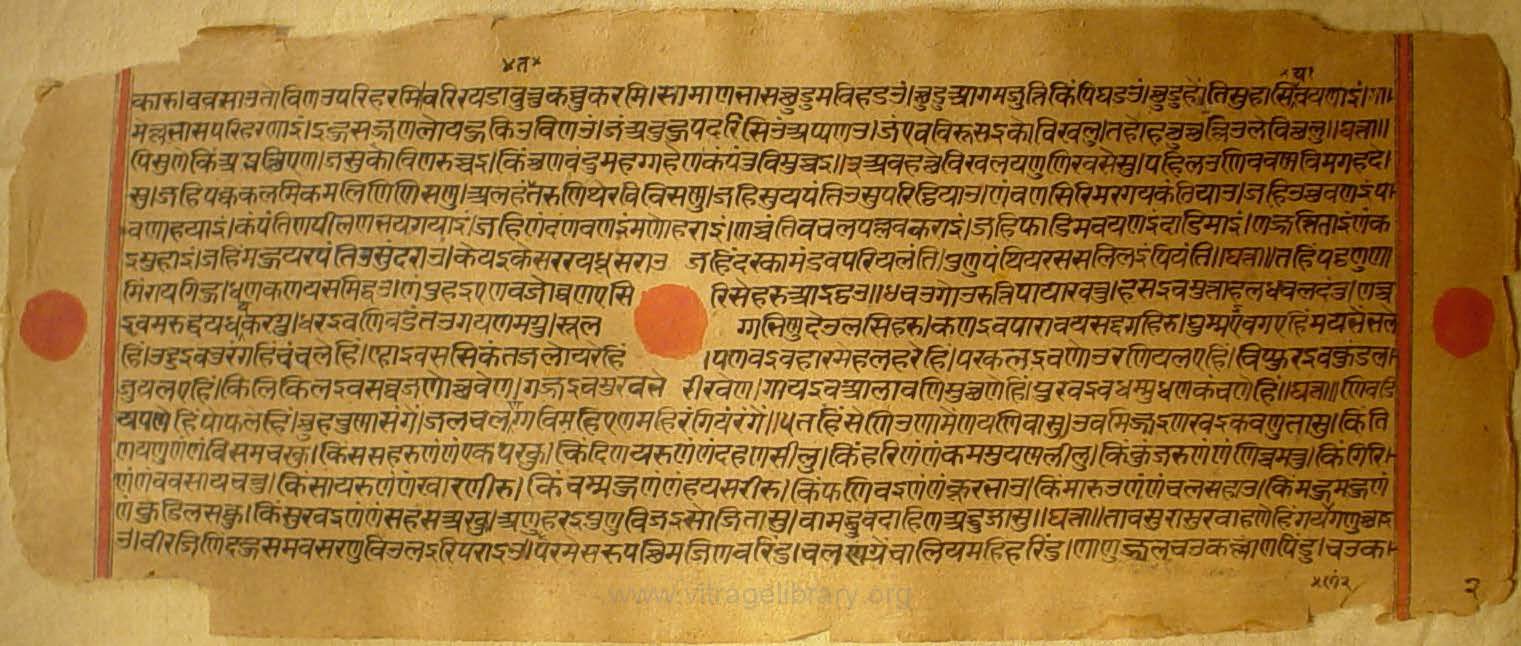 ×त×
×या
कारु।ववसाउतोविणउपरिहरमि।वरिरयडावुत्तुकव्वुकरमि।सामाणभासछुडुमविहडउ।छुडुआगमजुत्तिकिंपिघडउ।छुडुहोंतिसुहासियवयणाइं।गा
मेल्लभासपरिहरणाइं।इहुसज्जणलोयहुकिउविणउ।जंअबुहुपदरिसिउअप्पणउ।जंएववि रूसइकोविखलु।तहोहत्थुत्थल्लिउलेविछलु॥घत्ता॥
पिसुणेकिंअब्भत्थिएण।जसुकोविणरुच्चइ।किंछणचंदुमहग्गहेणकंपंतुविमुच्चइ॥३अवहत्थविखलयणुणिरवसेसु।पहिलउणिवण्णविमगहदे
सु।जहिपक्ककलमिकमलिणिणिसणु।अलहंततरणिथेरवविसणु।जहिसुयपंतिउसुपरिट्ठियाउ।णंवणसिरिमरगयकंठियाउ।जहिउच्छुवणइंपा
वणाहयाइं।कंपंतिणपीलणभयगयाइं।जहिणंदणवणइंमणोहराइं।णच्चंतिवचलपल्लवकराइं।जहिफाडिमवयणइंदाडिमाइं।णज्जंतिताइंणंक
इमुहाइं।जहिंमहुयरपंतिउसुंदराउ।केयइकेसररयधूसराउ जहिंदक्खामंडवपरियलंति।पुणुपंथियरससलिलइंपियंति॥घत्ता॥तहिपट्टणुणा
मिंरायगिहु।धणकणयसमिद्धउ।णंपुहइएणवजोव्वणएसि रिसेहरुआइद्धउ॥धचउगोउरुत्तिपायारवंतु।हसइवमुत्ताहलधवलदंतु।णच्च
इवमरुद्धुयधयकरग्गु।धरइवणिवडंतउगयणमग्गु।सूल ग्गभिणुदेउलसिहरु।कणइवपारावयसद्दगहिरु।घुम्मइवगएहिंमयभेंभले
हिं।उड्डइवतुरंगहिंचंचलेहिं।ण्हाइवससिकंतजलोयरेहिं ।पणवइवहारमेहलहरेहि।पक्खलइवणेउरणियलएहिं।विप्फुरइवकुंडल
जुयलएहि।किलिकिलइवसव्वजणोच्छवेण।गज्जइवमुरवभे रीरवेण।गायइवआलावणिमुच्छणेहिं।पुरवइवधम्मुधणकंचणेहिं॥घत्ता॥णिवडि
यपण्णेहिंपोफलेहिं।छुहचुणासंगें।जणचलणग्गविमद्दिएणमहिरंगियंरंगें॥५तहिंसेणिउणामेणयणिवासु।उवमिज्जइणरवइकवणुतासु।किंति
णयणुणंणंविसमचक्खु।किंससहरुणंणंएकपक्खु।किंदिणयरुणंणंदहणसीलु।किंहरिणंणंकमसुयणलीलु।किंकुंजरुणंणंणिच्चमत्तु।किंगिरि
णंणंववसायचत्तु।किंसायरुणंणंखारणीरु। किंवम्महुणंणंहयसरीरु।किंफणिवइणंणंकूरभाउ।किंमारुउणंणंचलसहाउ।किंमहुमहणं
णंकुडिलसंकु।किंसुरवइणंणंसहसअक्खु।अणुहरइपुणुविजइसोजितासु।वामद्धुवदाहिणअद्धुजासु॥घत्ता॥तावसुरासुरवाहणेहिंगयणगणुछाइ
उ।वीरजिणिंदहसमवसरणुविउलइरिपराइउ।परमेसरुपच्छिमजिणवरिंदु।चलणग्गेचालियमहिहरिंदु।णाणुज्जलचउकल्लाणपिंडु।चउक
२
www.vitragelibrary.org